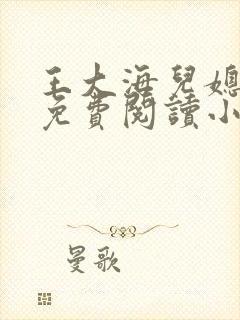 王大海兒媳
免費閱讀小
曼歌